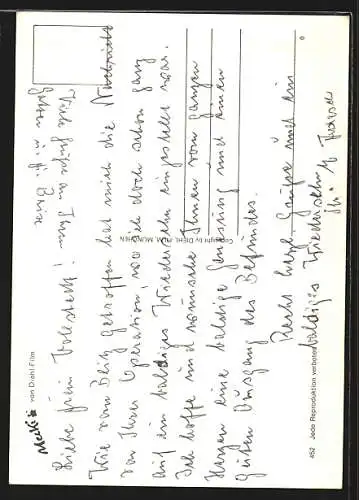 Mecki von Diehl-Film
Liebe Frau Volksdorf!
Wie vom Blitz getroffen hat mich die Nachricht
von Ihrer Operation, wo ich doch schon ganz
auf ein baldiges Wiedersehn eingestellt war.
Ich hoffe und wünsche Ihnen von ganzem
Herzen eine baldige Genesung und einen
guten Ausgang des Befundes.
Recht herzl. Grüße und ein
baldiges Wiedersehn
Ihr
Viele Grüße an Ihren
Copyright by Diehl-FILM, MÜNCHEN
452 Jede Reproduktion verboten